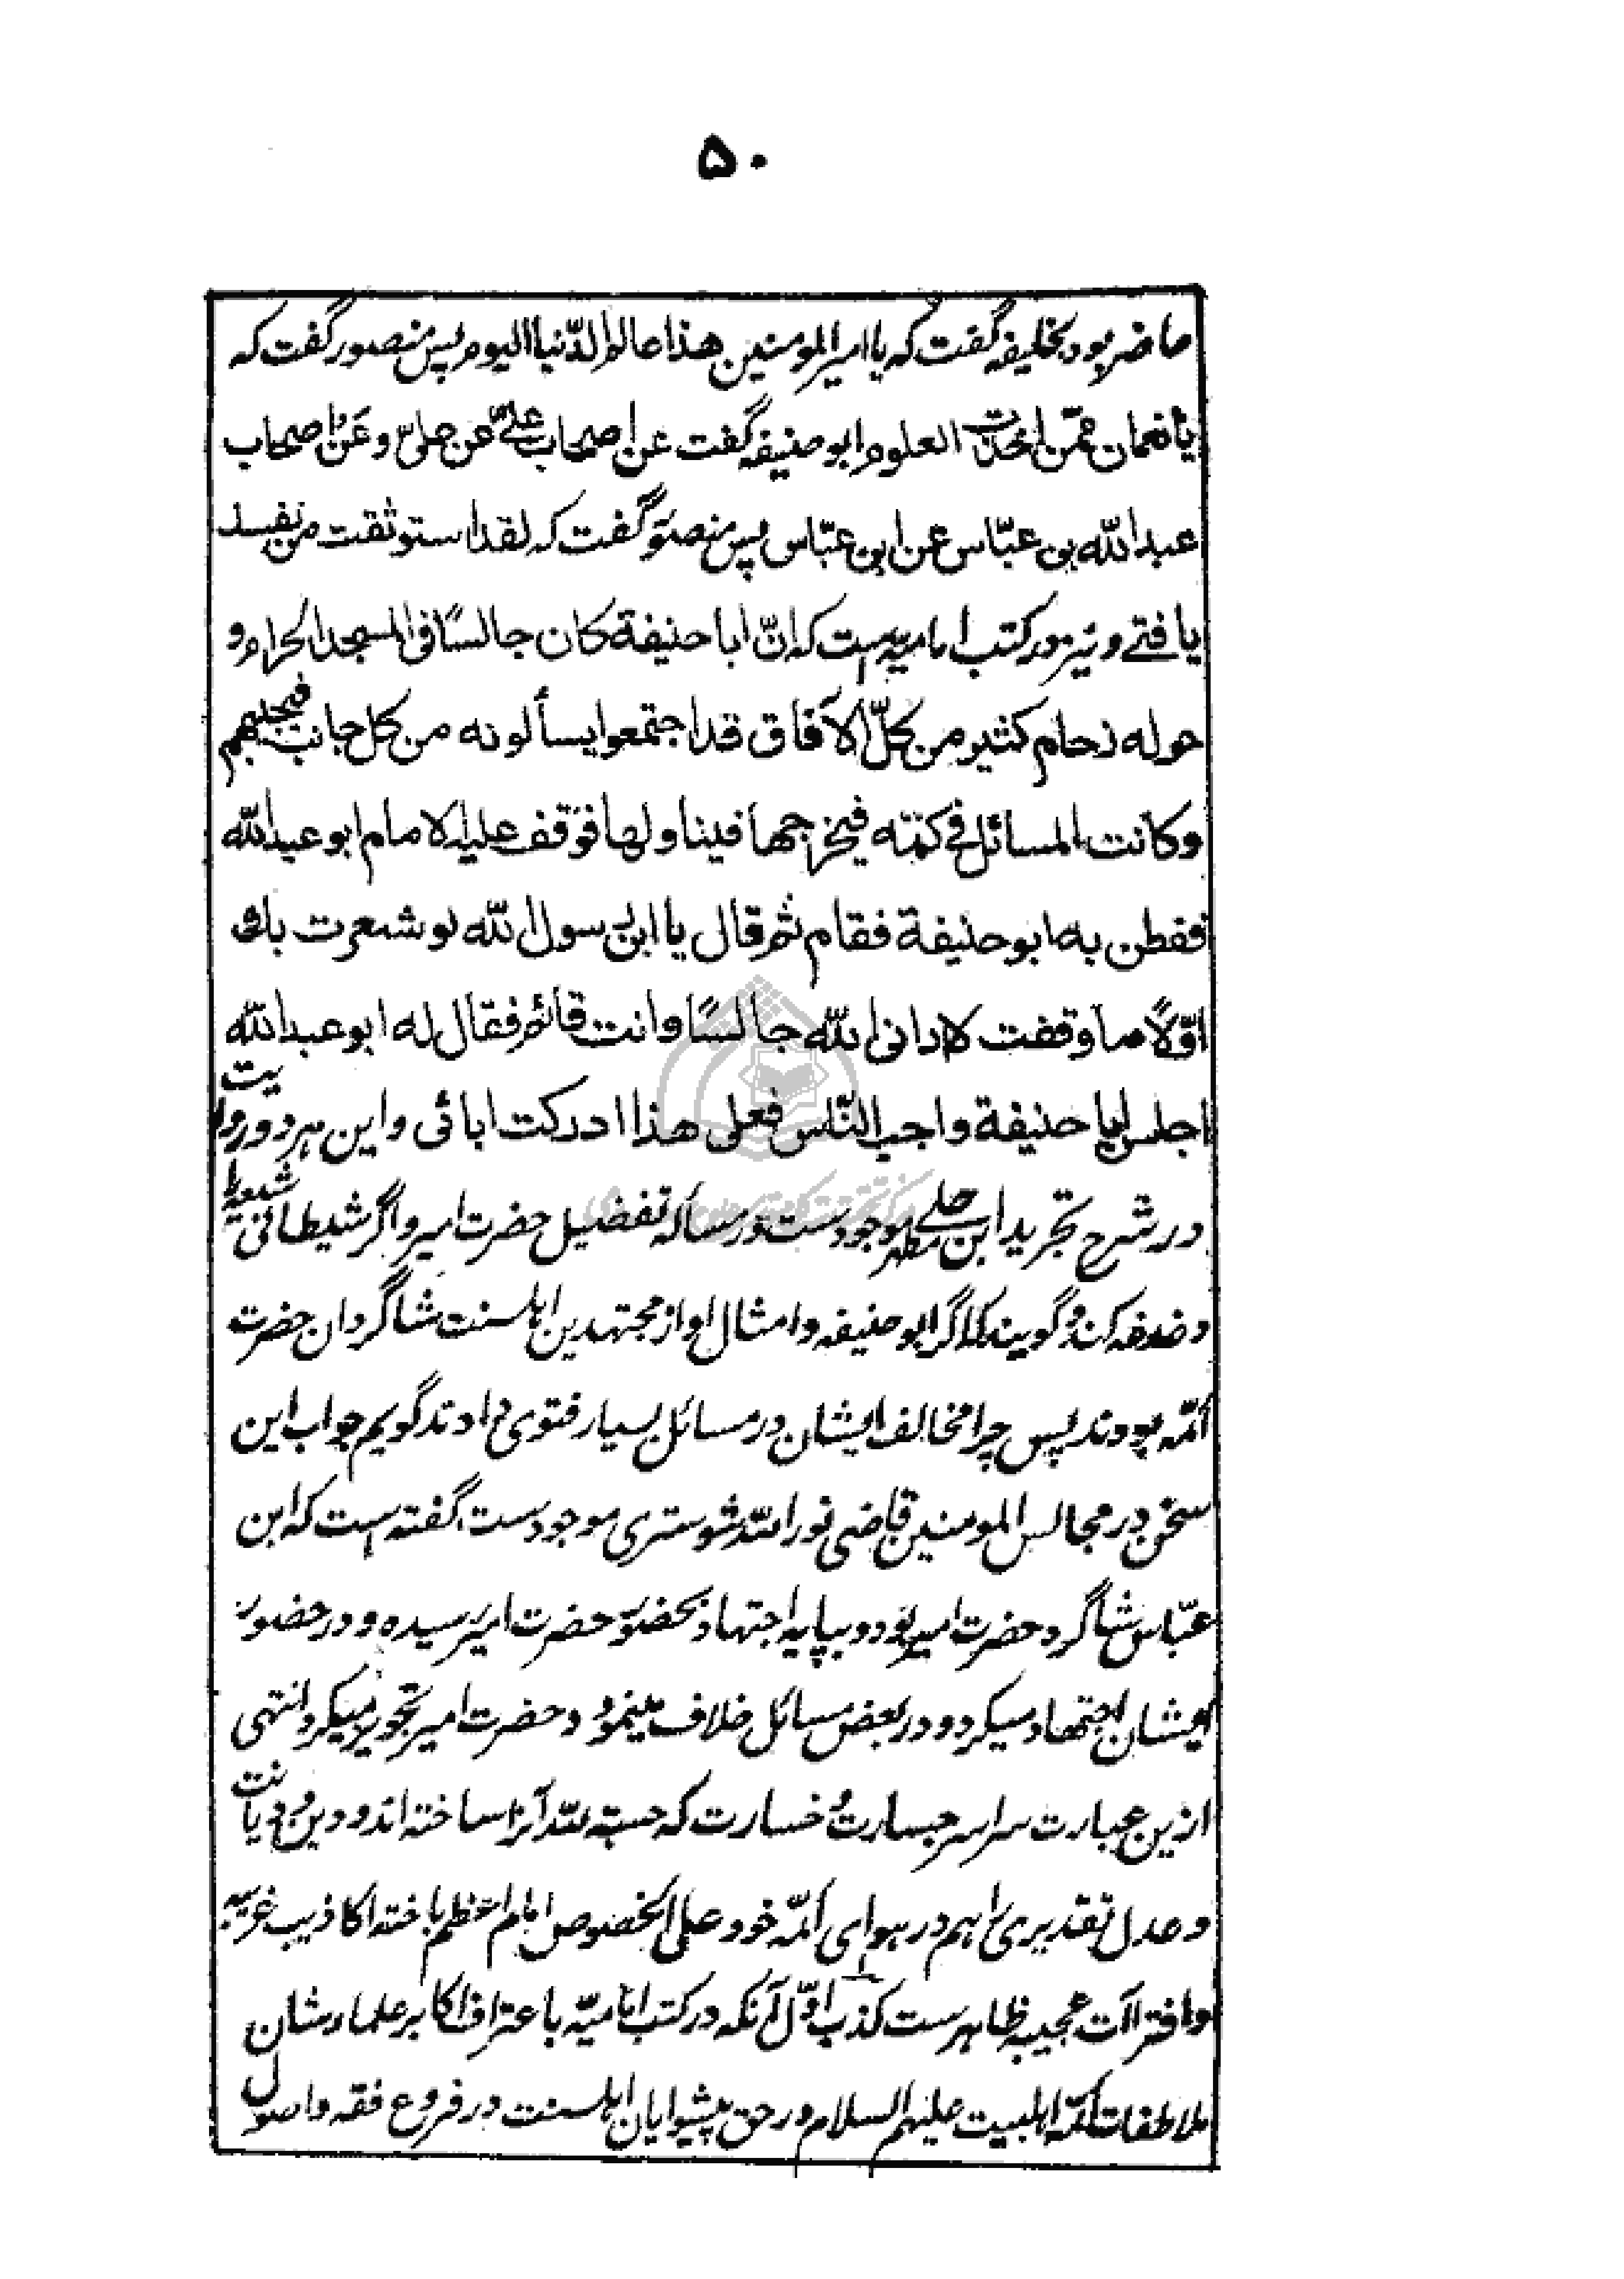 ۵۰
حاضر بود بخلیفه گفت که یا امیر المومنین هذا عالم الدّنیا الیوم پس منصور گفت که
یا نعمان ممّن اخذت العلوم ابو حنیفه گفت عن اصحاب علیّ عن علیّ و عن اصحاب
عبد الله بن عبّاس عن ابن عبّاس پس منصور گفت که لقد استوثقت من نفسک
یا فتے و نیز در کتب امامیه است که انّ ابا حنیفة کان جالسًا فی المسجد الحرام و
حوله زحام کثیر من کلّ الآفاق قد اجتمعوا یسألونه من کل جانب فیجیبهم
وکانت المسائل فی کمّه فیخرجها فیناولها فوقف علیه الامام ابو عبد الله
ففطن به ابو حنیفة فقام ثم قال یا ابن رسول الله لو شعرت بک
اوّلًا ما وقفت لا رانی الله جالسًا وانت قائم فقال له ابو عبد الله
اجلس ابا حنیفة واجب النّاس فعلی هذا ادرکت ابائی و این هر دو روایت
در شرح تجرید ابن مطهر حلے موجودست در مسأله تفضیل حضرت امیر و اگر شیطانی شیعه را
دغدغه کند و گویند که اگر ابو حنیفه و امثال او از مجتهدین اهلسنت شاگردان حضرت
ائمّه بودند پس چرا مخالف ایشان در مسائل بسیار فتوی دادند گویم جواب این
سخن در مجالس المومنین قاضی نور الله شوستری موجودست گفته است که ابن
عبّاس شاگرد حضرت امیر بود و بپایه اجتهاد بحضور حضرت امیر رسیده و در حضور
ایشان اجتهاد میکرد و در بعض مسائل خلاف مینمود و حضرت امیر تجویز میکرد انتهی
ازین عبارت سراسر جسارت و خسارت که حسبة لله آنرا ساخته اند و دین و دیانت
و عدل تقدیری را هم در هوای ائمّه خود علی الخصوص امام اعظم باخته اکاذیب غریبه
و افتراآت عجیبه ظاهرست کذب اوّل آنکه در کتب امامیّه با عتراف اکابر علماء شان
ملاطفات ائمّه اهلبیت علیهم السلام در حق پیشوایان اهلسنت در فروع فقه و اصول